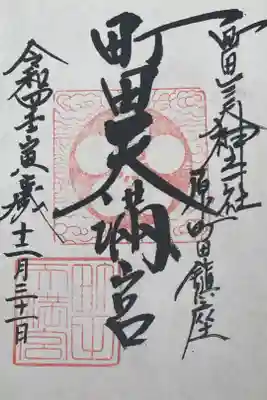 町田三天神社
原町田鎮座
町田天満宮
令和四壬寅歳十二月三十一日
町田
天満宮